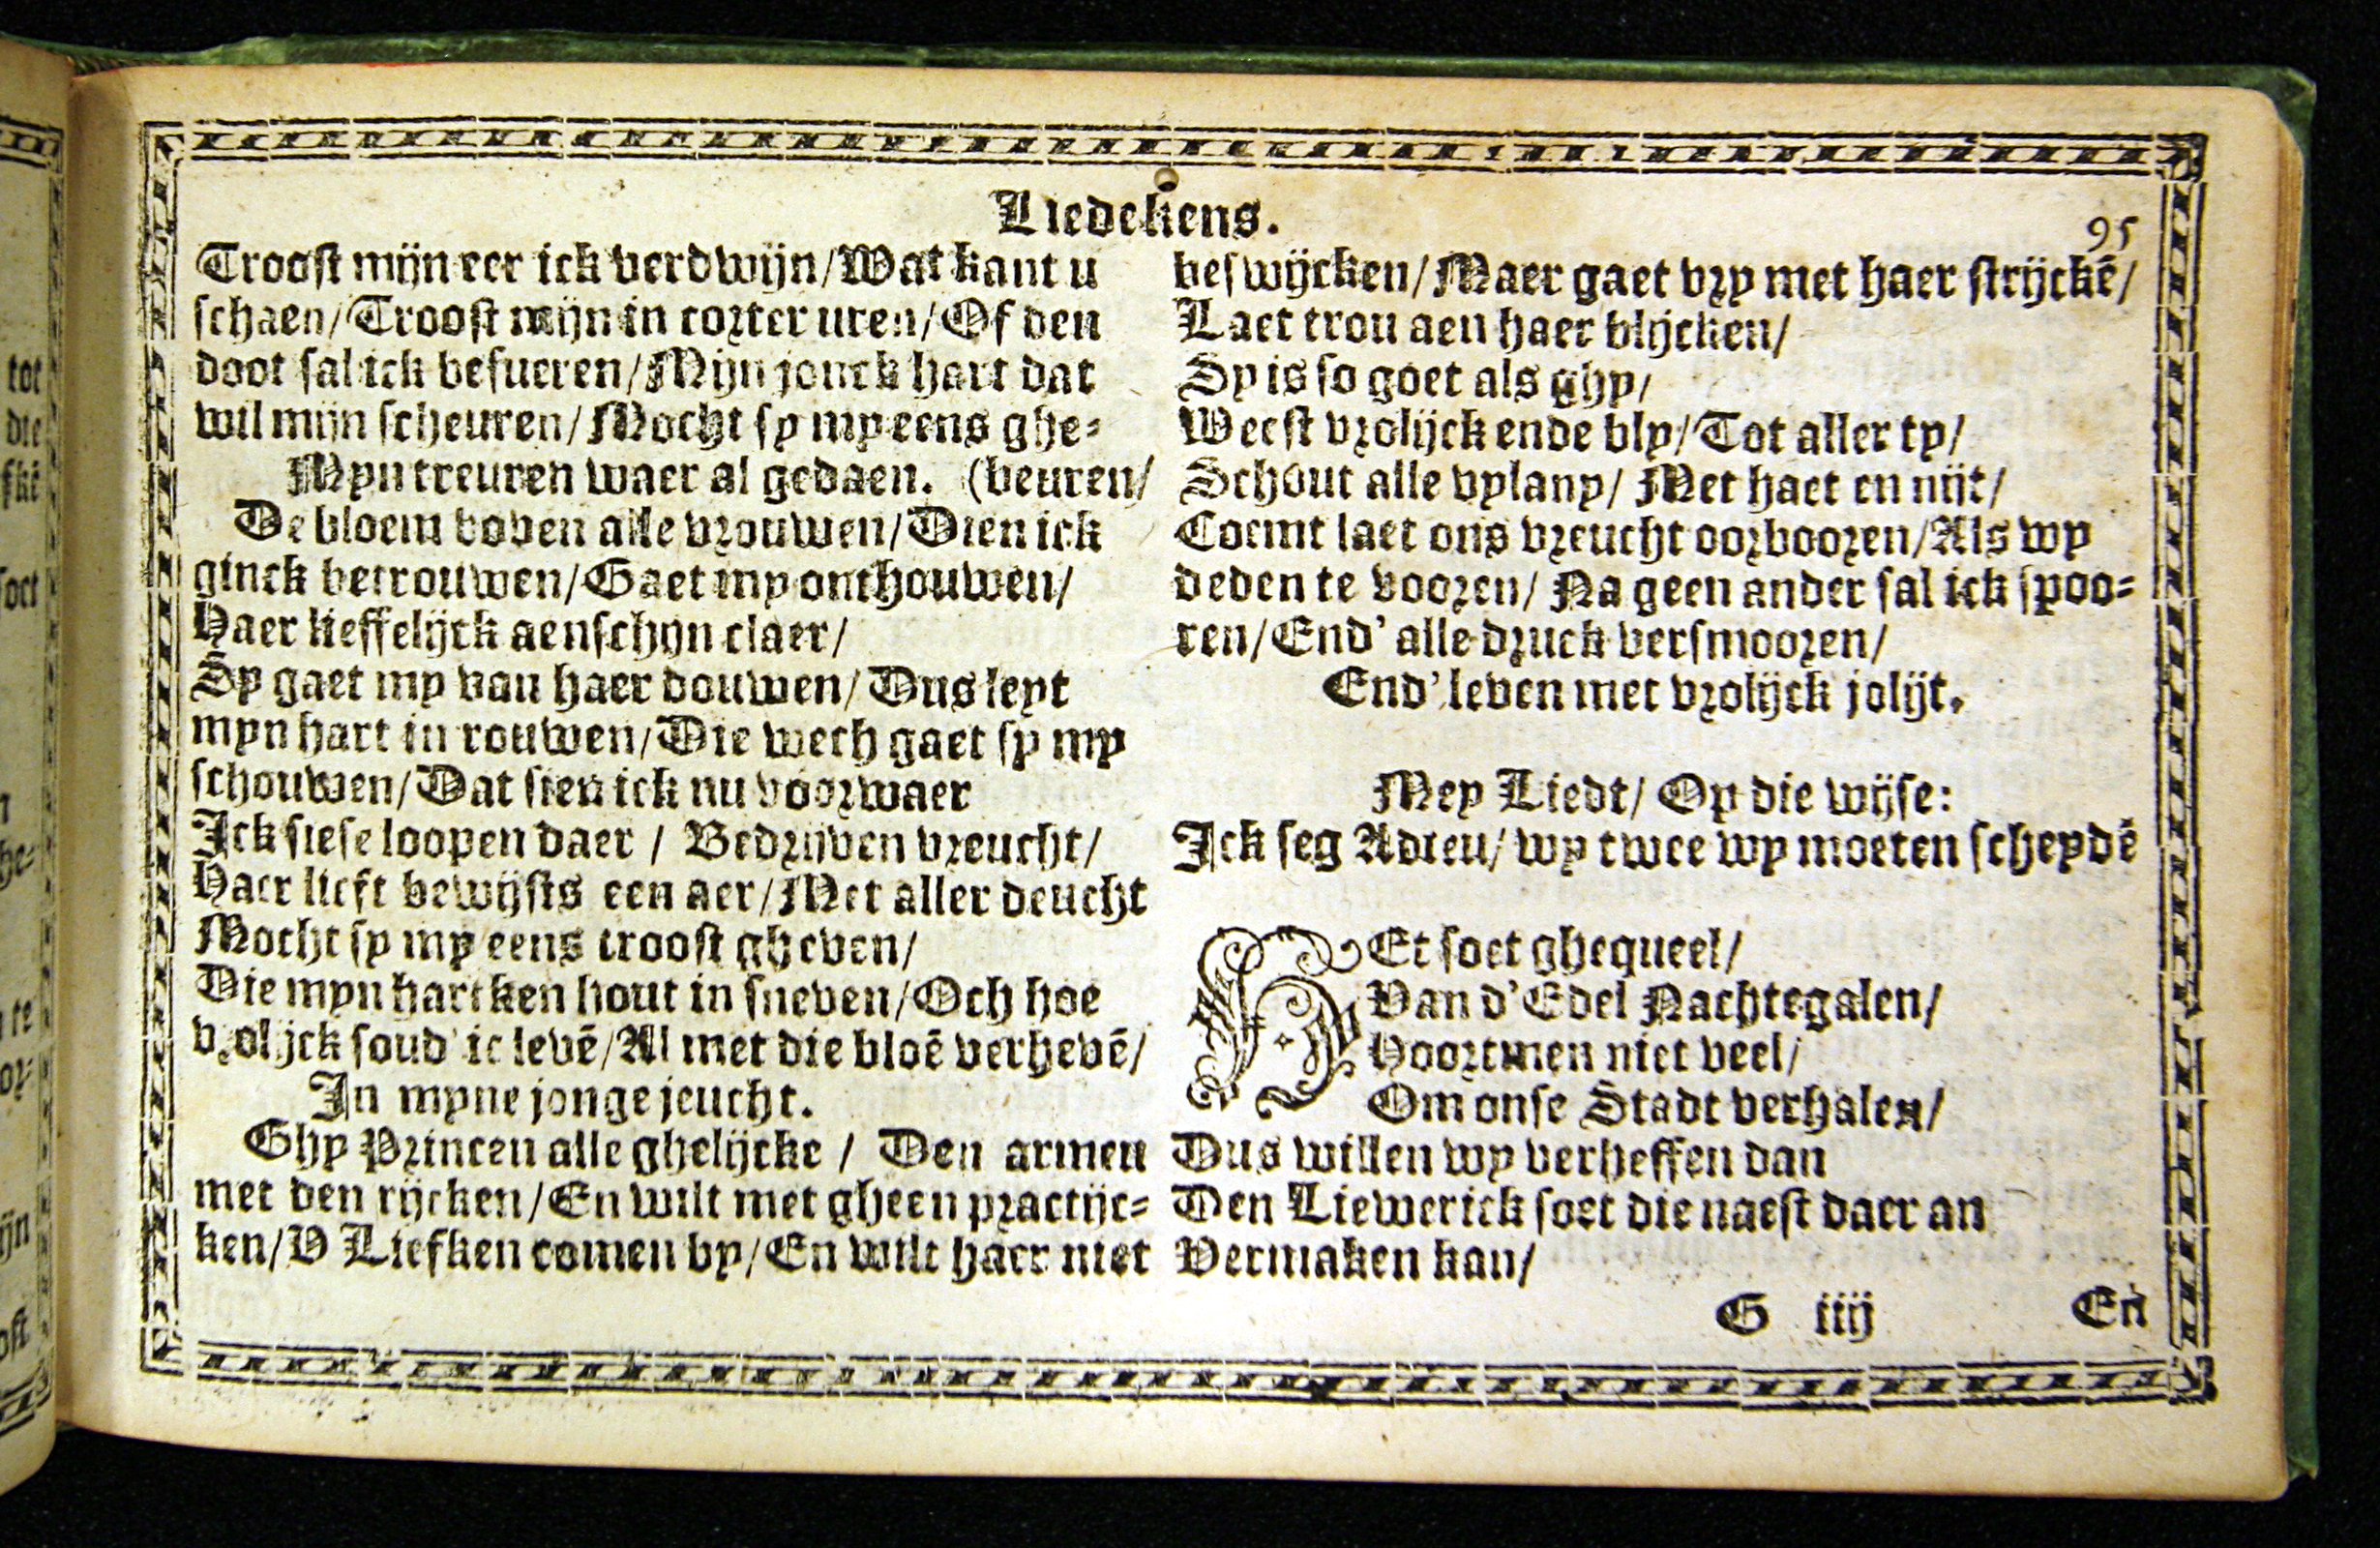 Liedekens.
95
Troost mijn eer ick verdwijn/Wat kant u
schaen/Troost mijn in corter uren/Of den
doot sal ick besueren/Mijn jonck hart dat
wil mijn scheuren/Mocht sy my eens ghe-
Myn treuren waer al gedaen. (beuren/
De bloem boven alle vrouwen/Dien ick
ginck betrouwen/Gaet my onthouwen/
Haer lieffelijck aenschijn claer/
Sy gaet my van haer douwen/Dus leyt
myn hart in rouwen/Die wech gaet sy my
schouwen/Dat sien ick nu voorwaer
Ick siese loopen daer / Bedrijven vreucht/
Haer lieft bewijsts een aer/Met aller deucht
Mocht sy my eens troost gheven/
Die myn hartken hout in sneven/Och hoe
vrolijck soud' ic levē/Al met die bloē verhevē/
In myne jonge jeucht.
Ghy Princen alle ghelijcke / Den armen
met den rijcken/En wilt met gheen practijc-
ken/V Liefken comen by/En wilt haer niet
beswijcken/Maer gaet vry met haer strijckē/
Laet trou aen haer blijcken/
Sy is so goet als ghy/
Weest vrolijck ende bly/Tot aller ty/
Schout alle vylany/ Met haet en nijt/
Coemt laet ons vreucht oorbooren/Als wy
deden te vooren/ Na geen ander sal ick spoo-
ren/End' alle druck versmooren/
End' leven met vrolijck jolijt.
Mey Liedt/ Op die wijse:
Ick seg Adieu/ wy twee wy moeten scheydē
HEt soet ghequeel/
Van d'Edel Nachtegalen/
Hoortmen niet veel/
Om onse Stadt verhalen/
Dus willen wy verheffen dan
Den Liewerick soet die naest daer an
Vermaken kan/
G iiij
En